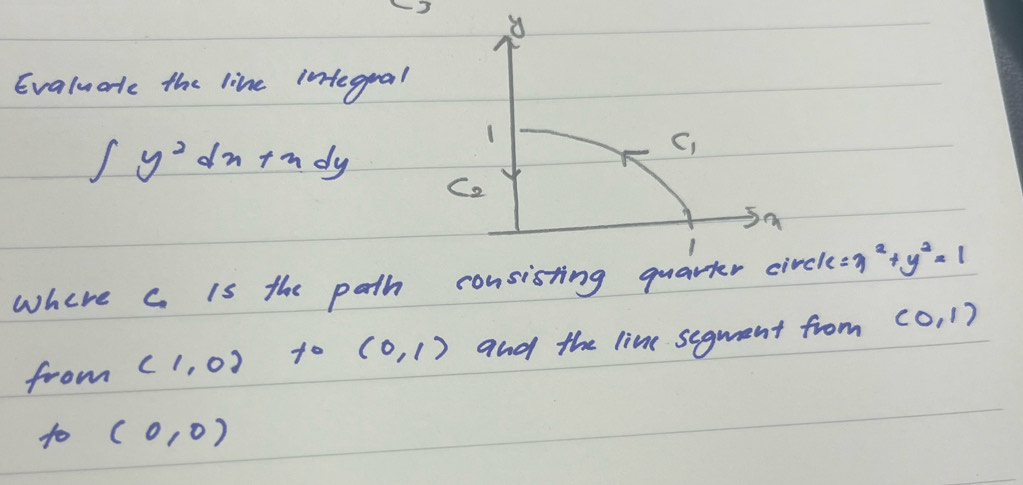 C3
y
Evaluate the line integral
∫ y² dx + x dy
1
C1
C2
x
1
where C is the path consisting quarter circle = x² + y² = 1
from (1,0) to (0,1) and the line segment from (0,1)
to (0,0)